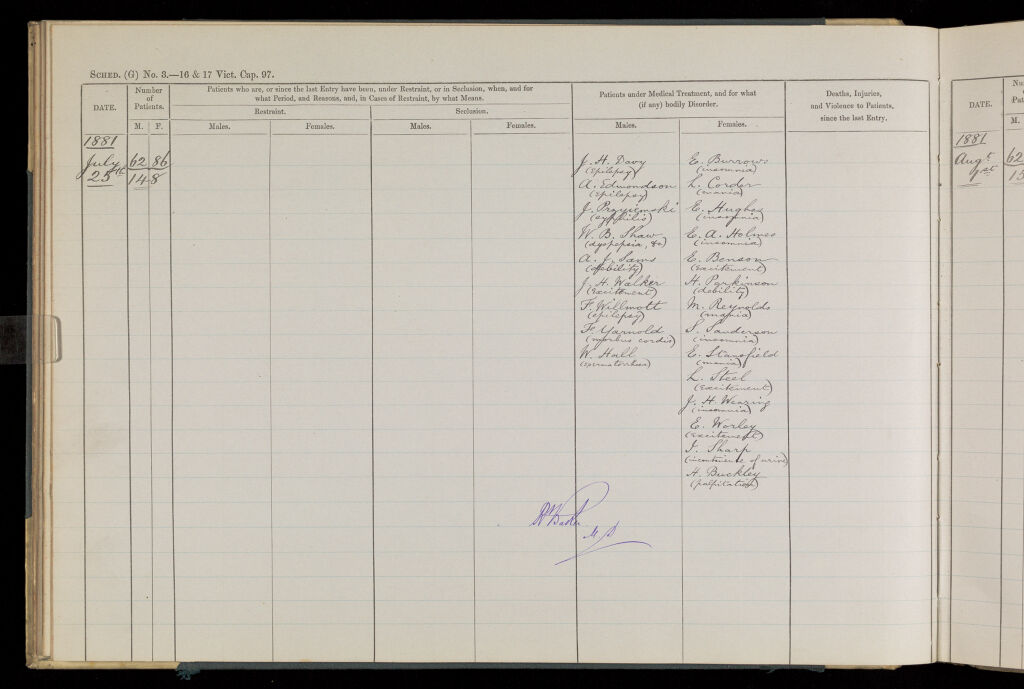 SCHED. (G) No. 3.—16 & 17 Vict. Cap. 97.
DATE.
Number of Patients.
M. F.
Patients who are, or since the last Entry have been, under Restraint, or in Seclusion, when, and for
what Period, and Reasons, and, in Cases of Restraint, by what Means.
Restraint.
Seclusion.
Males.
Females.
Males.
Females.
Patients under Medical Treatment, and for what
(if any) bodily Disorder.
Males.
Females.
Deaths, Injuries,
and Violence to Patients,
since the last Entry.
1881
July 25th
62 86
148
J. H. Davy
(epilepsy)
A. Edmondson
(epilepsy)
J.
(syphilis)
W. B. Shaw
(dyspepsia, &c)
A. J. Sams
(debility)
J. H. Walker
(excitement)
F. Willmott
(epilepsy)
F. Yarnold
(morbus cordis)
W. Hall
(spermatorrhea)
E. Burrows
(insomnia)
L. Corder
(mania)
E. Hughes
(insomnia)
E. A. Holmes
(insomnia)
E. Benson
(excitement)
H. Parkinson
(debility)
M. Reynolds
(mania)
S. Sanderson
(insomnia)
E. Stansfield
(mania)
L. Steel
(excitement)
J. H. Wearing
(insomnia)
E. Worley
(excitement)
Sharp
(incontinence of urine)
H. Buckley
(palpitation)
Baker
M.D
DATE.
M.
1881
Augt 1st
62